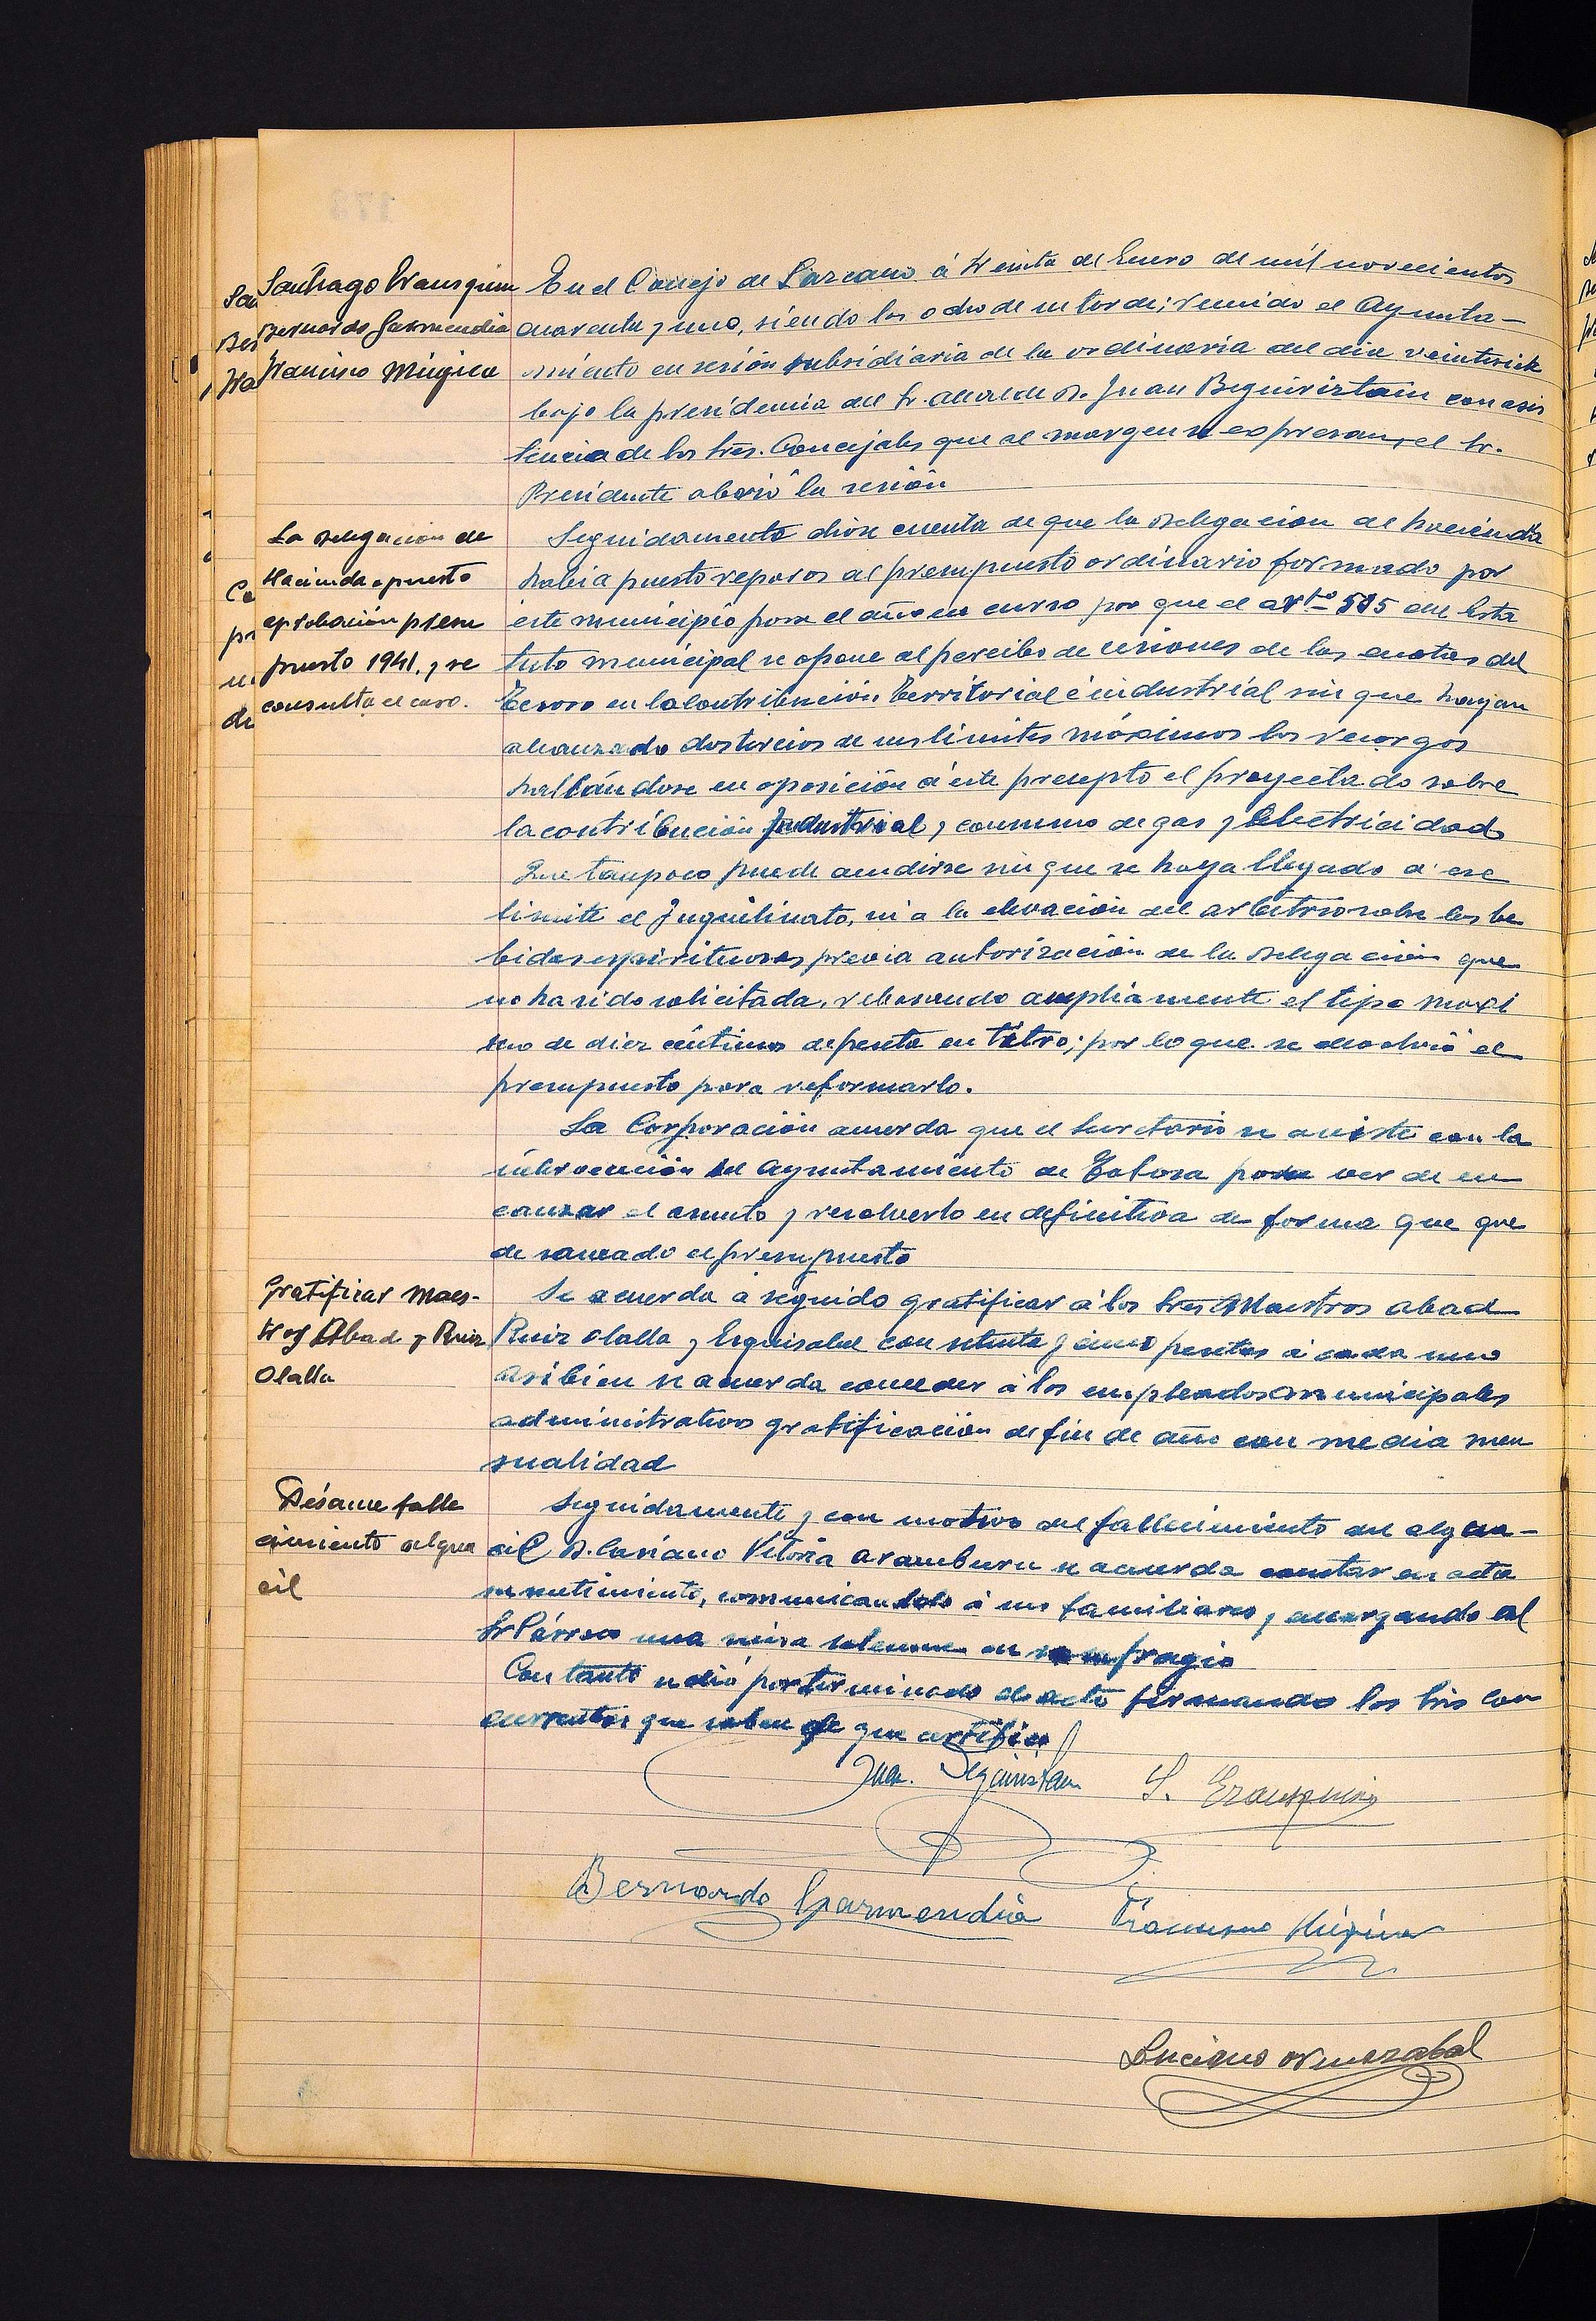 Santiago Erausquin
Bernardo Garmendia
Francisco Múgica
En el Concejo de Lazcano á treinta de Enero de mil novecientos
cuarenta y uno, siendo las ocho de su tarde; reunido el Ayunta-
miento en sesión subsidiaria de la ordinaria del dia veintisiete
bajo la presidencia del Sr. Alcalde D. Juan Beguiristain con asis
tencia de los Sres. Concejales que al margen se expresan, el Sr.
Presidente abrió la sesión
La Delegacion de
Hacienda opuesto
aprobación presu
puesto 1941, y se
consulta el caso.
Seguidamente dióse cuenta de que la Delegacion de hacienda
habia puesto reparos al presupuesto ordinario formado por
este municipio para el año en curso por que el artº 535 del Esta
tuto municipal se opone al percibo de cesiones de las cuotas del
Tesoro en la Contribución Territorial é industrial sin que hayan
alcanzado dos tercios de sus limites máximos los recargos
hallándose en oposición á este precepto el proyectado sobre
la contribución Industrial y consumo de gas y electricidad
Que tampoco puede acudirse sin que se haya llegado a ese
limite el Inquilinato, ni a la elevación del arbitrio sobre las be
bidas espirituosas previa autorización de la Delegación que
no ha sido solicitada, rebasando ampliamente el tipo maxi
mo de diez céntimos de peseta en litro; por lo que se devolvió el
presupuesto para reformarlo.
La Corporación acuerda que el Secretario se aviste con la
intervención del Ayuntamiento de Tolosa para ver de en
cauzar el asunto y resolverlo en definitiva de forma que que
de saneado el presupuesto
Gratificar Maes-
tros Abad y Ruiz
Olalla
Se acuerda a seguido gratificar á los tres Maestros Abad
Ruiz Olalla y Esquisabel con setenta y cinco pesetas á cada uno
asi bien se acuerda conceder á los empleados municipales
administrativos gratificación de fin de año con media men
sualidad
Pésame falle
cimiento algua
cil
Seguidamente y con motivo del fallecimiento del algua-
cil D. Casiano Vitoria Aramburu se acuerda constar en acta
su sentimiento, comunicandolo á sus familiares y encargando al
Sr Párroco una misa solemne en su sufragio
Con tanto se dió por terminado el acto firmando los Sres Con
currentes que saben de que certifico
Juan Beguiristain S. Erausquin
Bernardo Garmendia Francisco Múgica
Luciano